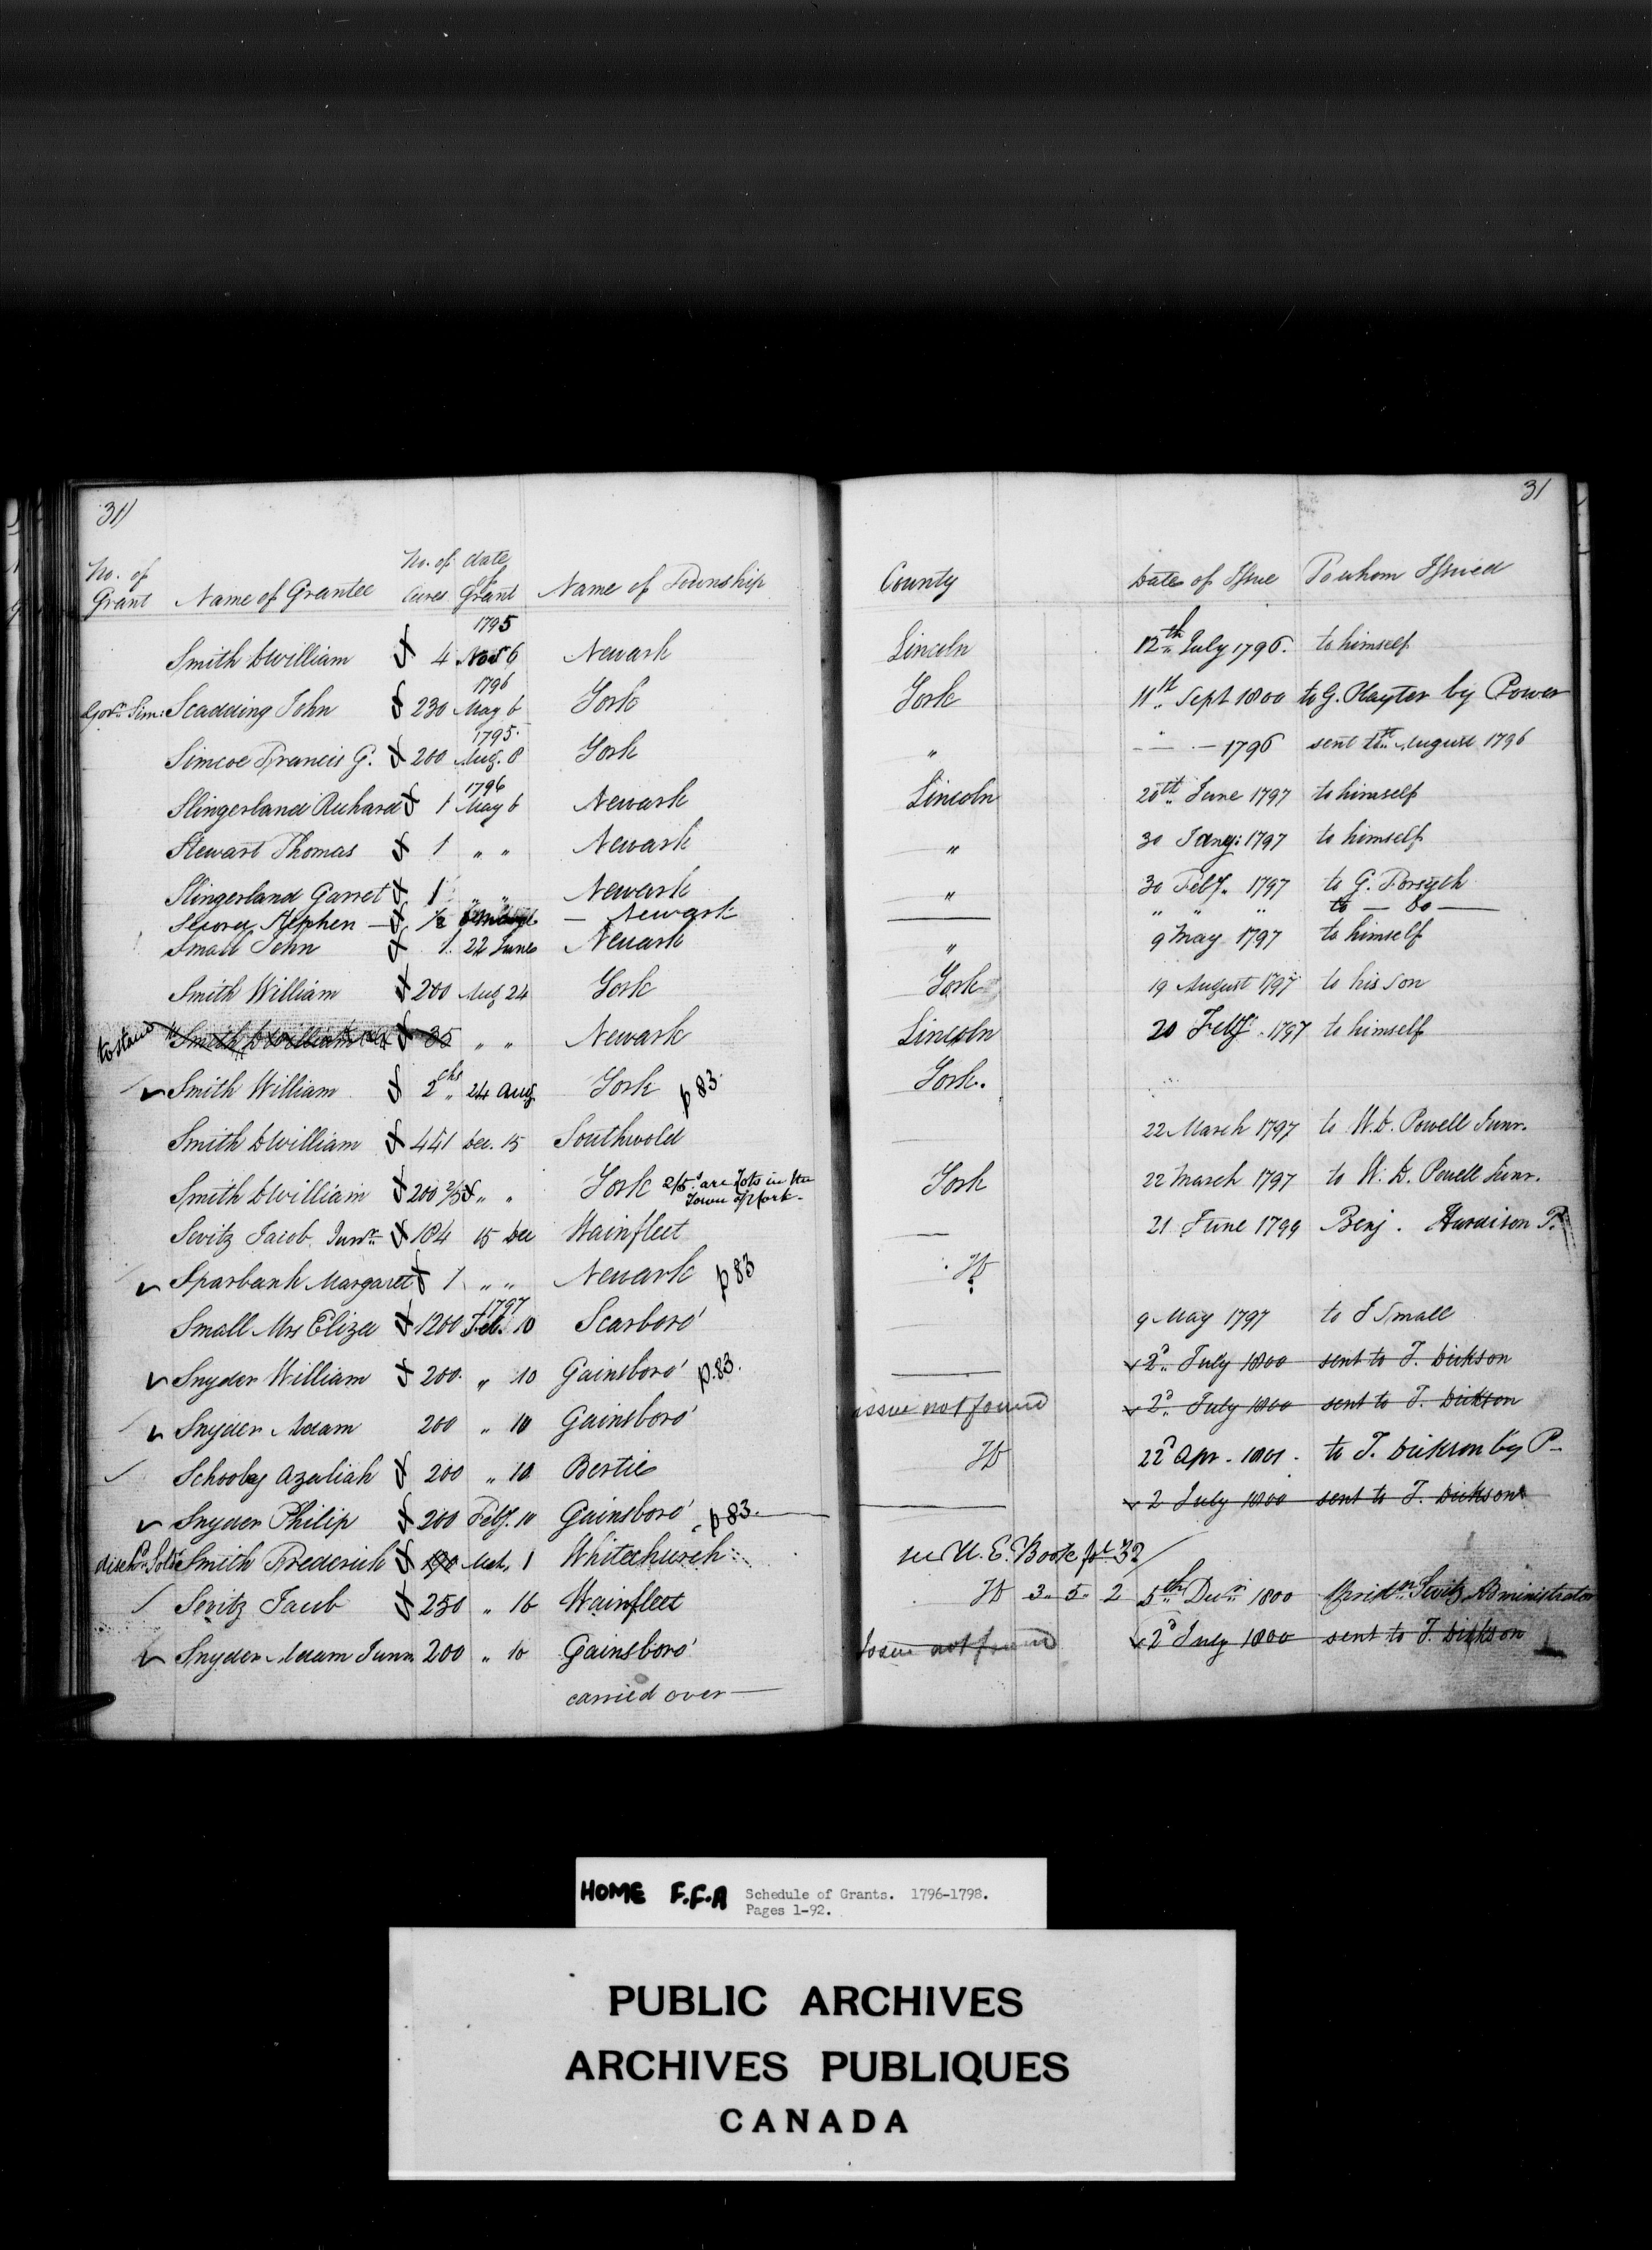 31)
31
No. of Grant Name of Grantee No. of Acres date of Grant Name of Township County Date of Issue To whom Issued
1795
Smith DWilliam 4 Nov 6 Newark Lincoln 12th July 1796. to himself
1796
Govr. Sim: Scadding John 230 May 6 York York 11th Sept 1800 to G. Playter by Power
1795.
Simcoe Francis G. 200 Aug. 8 York " — 1796 sent August 1796
1796
Slingerland Richard 1 May 6 Newark Lincoln 20th June 1797 to himself
Stewart Thomas 1 " " Newark " 30 Jany: 1797 to himself
Slingerland Garret 1 " " Newark " 30 Feby. 1797 to G. Forsyth
Secord Stephen — 1/2 — Newark — " " " to — Do —
Small John 1. 22 June Newark " 9 May 1797 to himself
Smith William 200 Aug 24 York York 19 August 1797 to his son
to stand Smith DWilliam 35 " " Newark Lincoln 20 Feby. 1797 to himself
Smith William 2 chs 24 Aug York p 83. York.
Smith DWilliam 441 Dec. 15 Southwold 22 March 1797 to W. D. Powell Junr.
Smith DWilliam 200 2/5 " " York 2/5s are Lots in the Town of York - York 22 March 1797 to W. D. Powell Junr.
Sevitz Jacob Junr. 184 15 Dec Wainfleet — 21 June 1799 Benj. Hardison P.
Sparbank Margaret 1 " " Newark p 83
1797
Small Mrs Eliza 1200 Feb. 10 Scarboro' 9 May 1797 to J Small
Snyder William 200. " 10 Gainsboro' p. 83. — 2d. July 1800 sent to T. Dickson
Snyder Adam 200 " 10 Gainsboro' issue not found 2d. July 1800 sent to T. Dickson
Schooley Azaliah 200 " 10 Bertie 22d Apr. 1801. to T. Dickson by P-
Snyder Philip 200 Feby. 10 Gainsboro' p 83. — 2 July 1800 sent to T. Dickson
dischd. Soldr Smith Frederick Mch. 1 Whitechurch see U. E. Book 32
Sevitz Jacob 250 " 16 Wainfleet 3. 5. 2 5th Decr. 1800 Sevitz Administrator
Snyder Adam Junr. 200 " 10 Gainsboro' Issue not found 2d July 1800 sent to T. Dickson
carried over —
HOME F.F.A Schedule of Grants. 1796-1798.
Pages 1-92.
PUBLIC ARCHIVES
ARCHIVES PUBLIQUES
CANADA